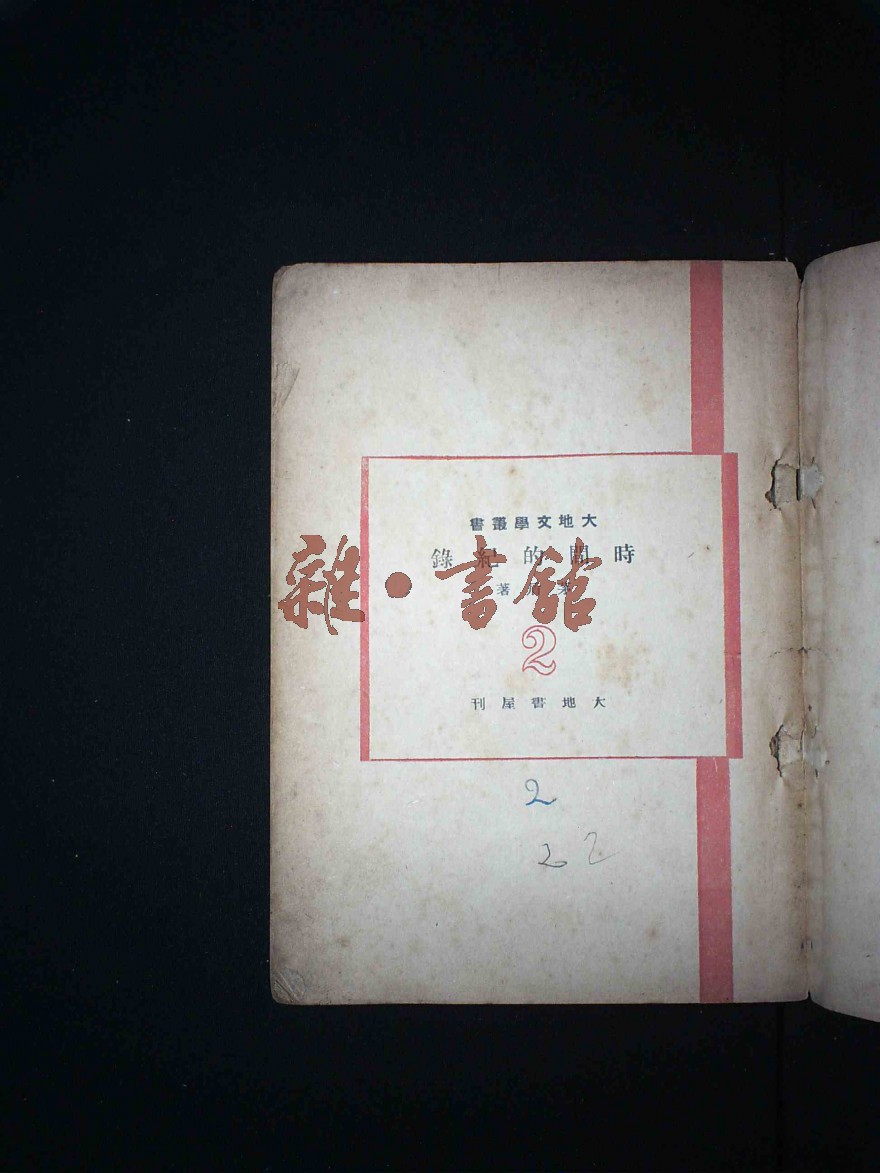 大地文學叢書
時間的紀錄
茅盾著
雜·書館
2
大地書屋刊
2
22